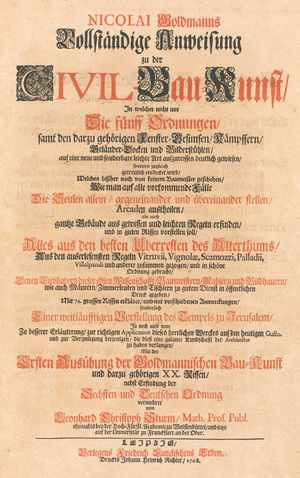 NICOLAI Goldmanns
Vollständige Anweisung
zu der
CIVIL-Bau-Kunst/
In welcher nicht nur
Die fünff Ordnungen/
samt den darzu gehörigen Fenster-Gesimsen/Kämpffern/
Geländer-Docken und Bilderstühlen/
auf eine neue und sonderbare leichte Art aufzureissen deutlich gewiesen/
sondern zugleich
gewentlich entdecket wird/
Welches bißher noch von keinem Baumeister geschehen/
Wie man auf alle vorkommende Fälle
Die Seulen allein / gegeneinander und übereinander stellen/
Arcaden austheilen/
als auch
gantze Gebäude aus gewissen und leichten Regeln erfinden/
und in guten Rissen vorstellen soll/
Alles aus den besten Überresten des Alterthums/
Aus den auserlesensten Regeln Vitruvii, Vignolæ, Scamozzi, Palladii,
Villalpandi und anderer zusammen gezogen/ und in schöne
Ordnung gebracht/
Denen Liebhabern dieser edlen Wissenschafft/Baumeistern/Mahlern und Bildhauern/
wie auch Mäurern/Zimmerleuten und Tischern zu guten Dienst in öffentlichen
Druck gegeben/
Mit 74. grossen Rissen erkläret/ und mit verschiedenen Anmerckungen/
sonderlich
Einer weitläufftigen Vorstellung des Tempels zu Jerusalem/
Ja noch aufs neue
Zu besserer Erläuterung/ zur richtigen Application dieses herrlichen Werckes auf den heutigen Gusto,
und zur Vergnügung derjenigen/ die diese galante Kundschafft der Architectur
zu haben verlangen/
Mit der
Ersten Ausübung der Goldmannischen Bau-Kunst
und darzu gehörigen XX. Rissen/
nebst Erfindung der
Sechsten und Deutschen Ordnung
vermehret
von
Leonhard Christoph Sturm/ Math. Prof. Publ.
ehemahls bey der Hoch-Fürstl. Academie zu Wolfenbüttel/ und jetzo
auf der Universität zu Franckfurt an der Oder.
LEIPZIG/
Verlegens Friedrich Lanckischens Erben/
Druckts Johann Heinrich Richter/ 1708.